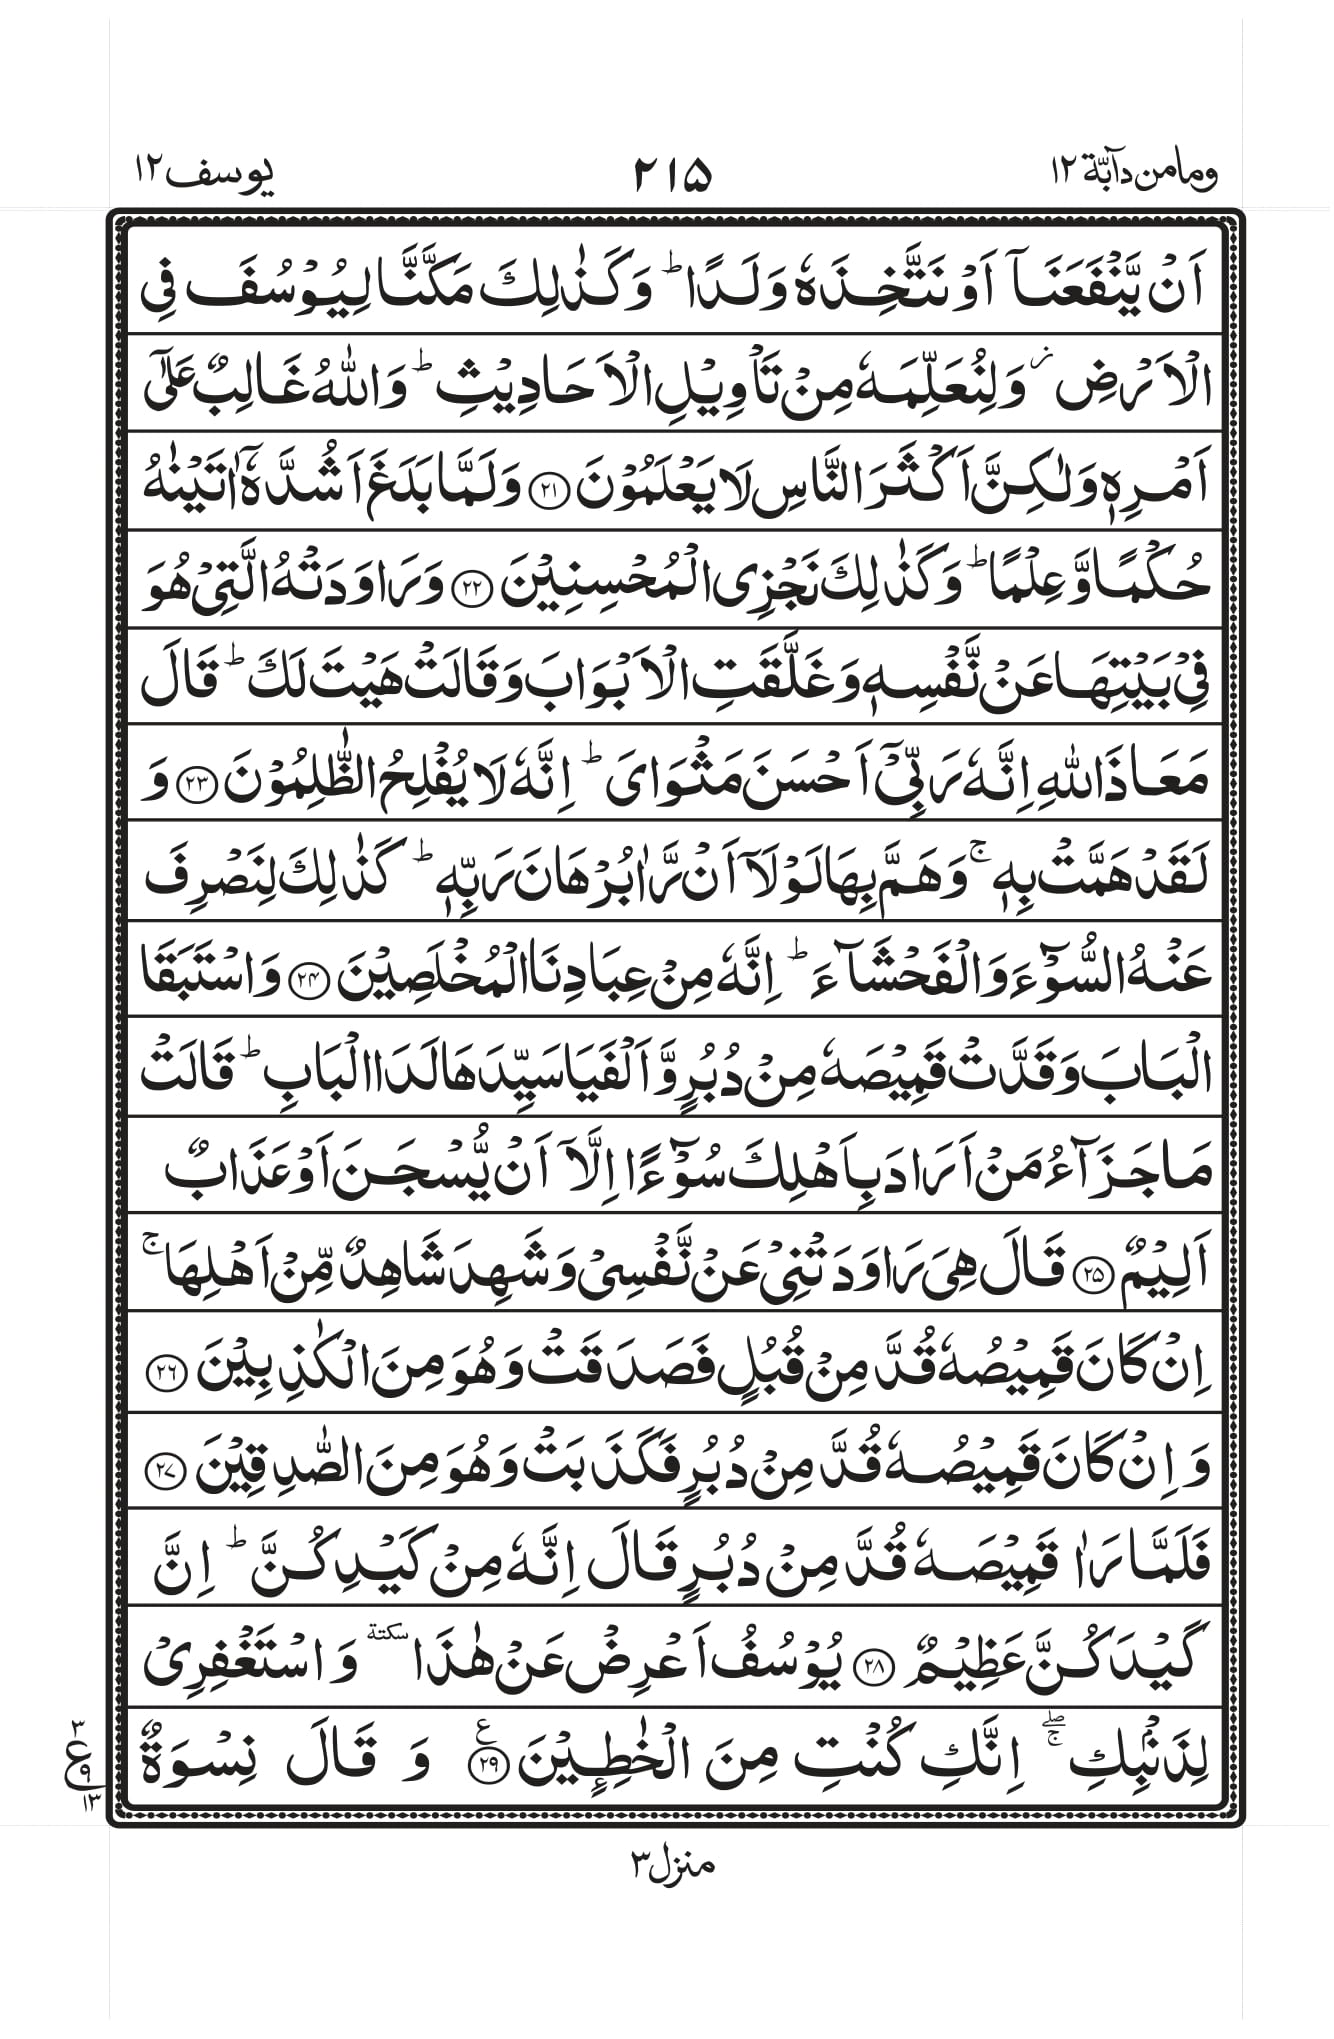 وما من دآبّة ١٢
۲۱۵
يوسف ١٢
اَنۡ يَّنۡفَعَنَاۤ اَوۡ نَتَّخِذَهٗ وَلَدًا ؕ وَكَذٰلِكَ مَكَّنَّا لِيُوۡسُفَ فِى
الۡاَرۡضِ ز وَلِنُعَلِّمَهٗ مِنۡ تَاۡوِيۡلِ الۡاَحَادِيۡثِ ؕ وَاللّٰهُ غَالِبٌ عَلٰٓى
اَمۡرِهٖ وَلٰكِنَّ اَكۡثَرَ النَّاسِ لَا يَعۡلَمُوۡنَ ﴿۲۱﴾ وَلَمَّا بَلَغَ اَشُدَّهٗۤ اٰتَيۡنٰهُ
حُكۡمًا وَّعِلۡمًا ؕ وَكَذٰلِكَ نَجۡزِى الۡمُحۡسِنِيۡنَ ﴿۲۲﴾ وَرَاوَدَتۡهُ الَّتِىۡ هُوَ
فِىۡ بَيۡتِهَا عَنۡ نَّفۡسِهٖ وَغَلَّقَتِ الۡاَبۡوَابَ وَقَالَتۡ هَيۡتَ لَكَ ؕ قَالَ
مَعَاذَ اللّٰهِ اِنَّهٗ رَبِّىۡۤ اَحۡسَنَ مَثۡوَاىَ ؕ اِنَّهٗ لَا يُفۡلِحُ الظّٰلِمُوۡنَ ﴿۲۳﴾ وَ
لَقَدۡ هَمَّتۡ بِهٖ ۚ وَهَمَّ بِهَا لَوۡلَاۤ اَنۡ رَّاٰ بُرۡهَانَ رَبِّهٖ ؕ كَذٰلِكَ لِنَصۡرِفَ
عَنۡهُ السُّوۡۤءَ وَالۡفَحۡشَآءَ ؕ اِنَّهٗ مِنۡ عِبَادِنَا الۡمُخۡلَصِيۡنَ ﴿۲۴﴾ وَاسۡتَبَقَا
الۡبَابَ وَقَدَّتۡ قَمِيۡصَهٗ مِنۡ دُبُرٍ وَّاَلۡفَيَا سَيِّدَهَا لَدَا الۡبَابِ ؕ قَالَتۡ
مَا جَزَآءُ مَنۡ اَرَادَ بِاَهۡلِكَ سُوۡۤءًا اِلَّاۤ اَنۡ يُّسۡجَنَ اَوۡ عَذَابٌ
اَلِيۡمٌ ﴿۲۵﴾ قَالَ هِىَ رَاوَدَتۡنِىۡ عَنۡ نَّفۡسِىۡ وَشَهِدَ شَاهِدٌ مِّنۡ اَهۡلِهَا ۚ
اِنۡ كَانَ قَمِيۡصُهٗ قُدَّ مِنۡ قُبُلٍ فَصَدَقَتۡ وَهُوَ مِنَ الۡكٰذِبِيۡنَ ﴿۲۶﴾
وَاِنۡ كَانَ قَمِيۡصُهٗ قُدَّ مِنۡ دُبُرٍ فَكَذَبَتۡ وَهُوَ مِنَ الصّٰدِقِيۡنَ ﴿۲۷﴾
فَلَمَّا رَاٰ قَمِيۡصَهٗ قُدَّ مِنۡ دُبُرٍ قَالَ اِنَّهٗ مِنۡ كَيۡدِكُنَّ ؕ اِنَّ
كَيۡدَكُنَّ عَظِيۡمٌ ﴿۲۸﴾ يُوۡسُفُ اَعۡرِضۡ عَنۡ هٰذَا سكتة وَاسۡتَغۡفِرِىۡ
لِذَنۡۢبِكِ ۖۚ اِنَّكِ كُنۡتِ مِنَ الۡخٰطِـِٕيۡنَ ﴿۲۹﴾ ع وَ قَالَ نِسۡوَةٌ
۳
ع
۹
۱۳
منزل ۳